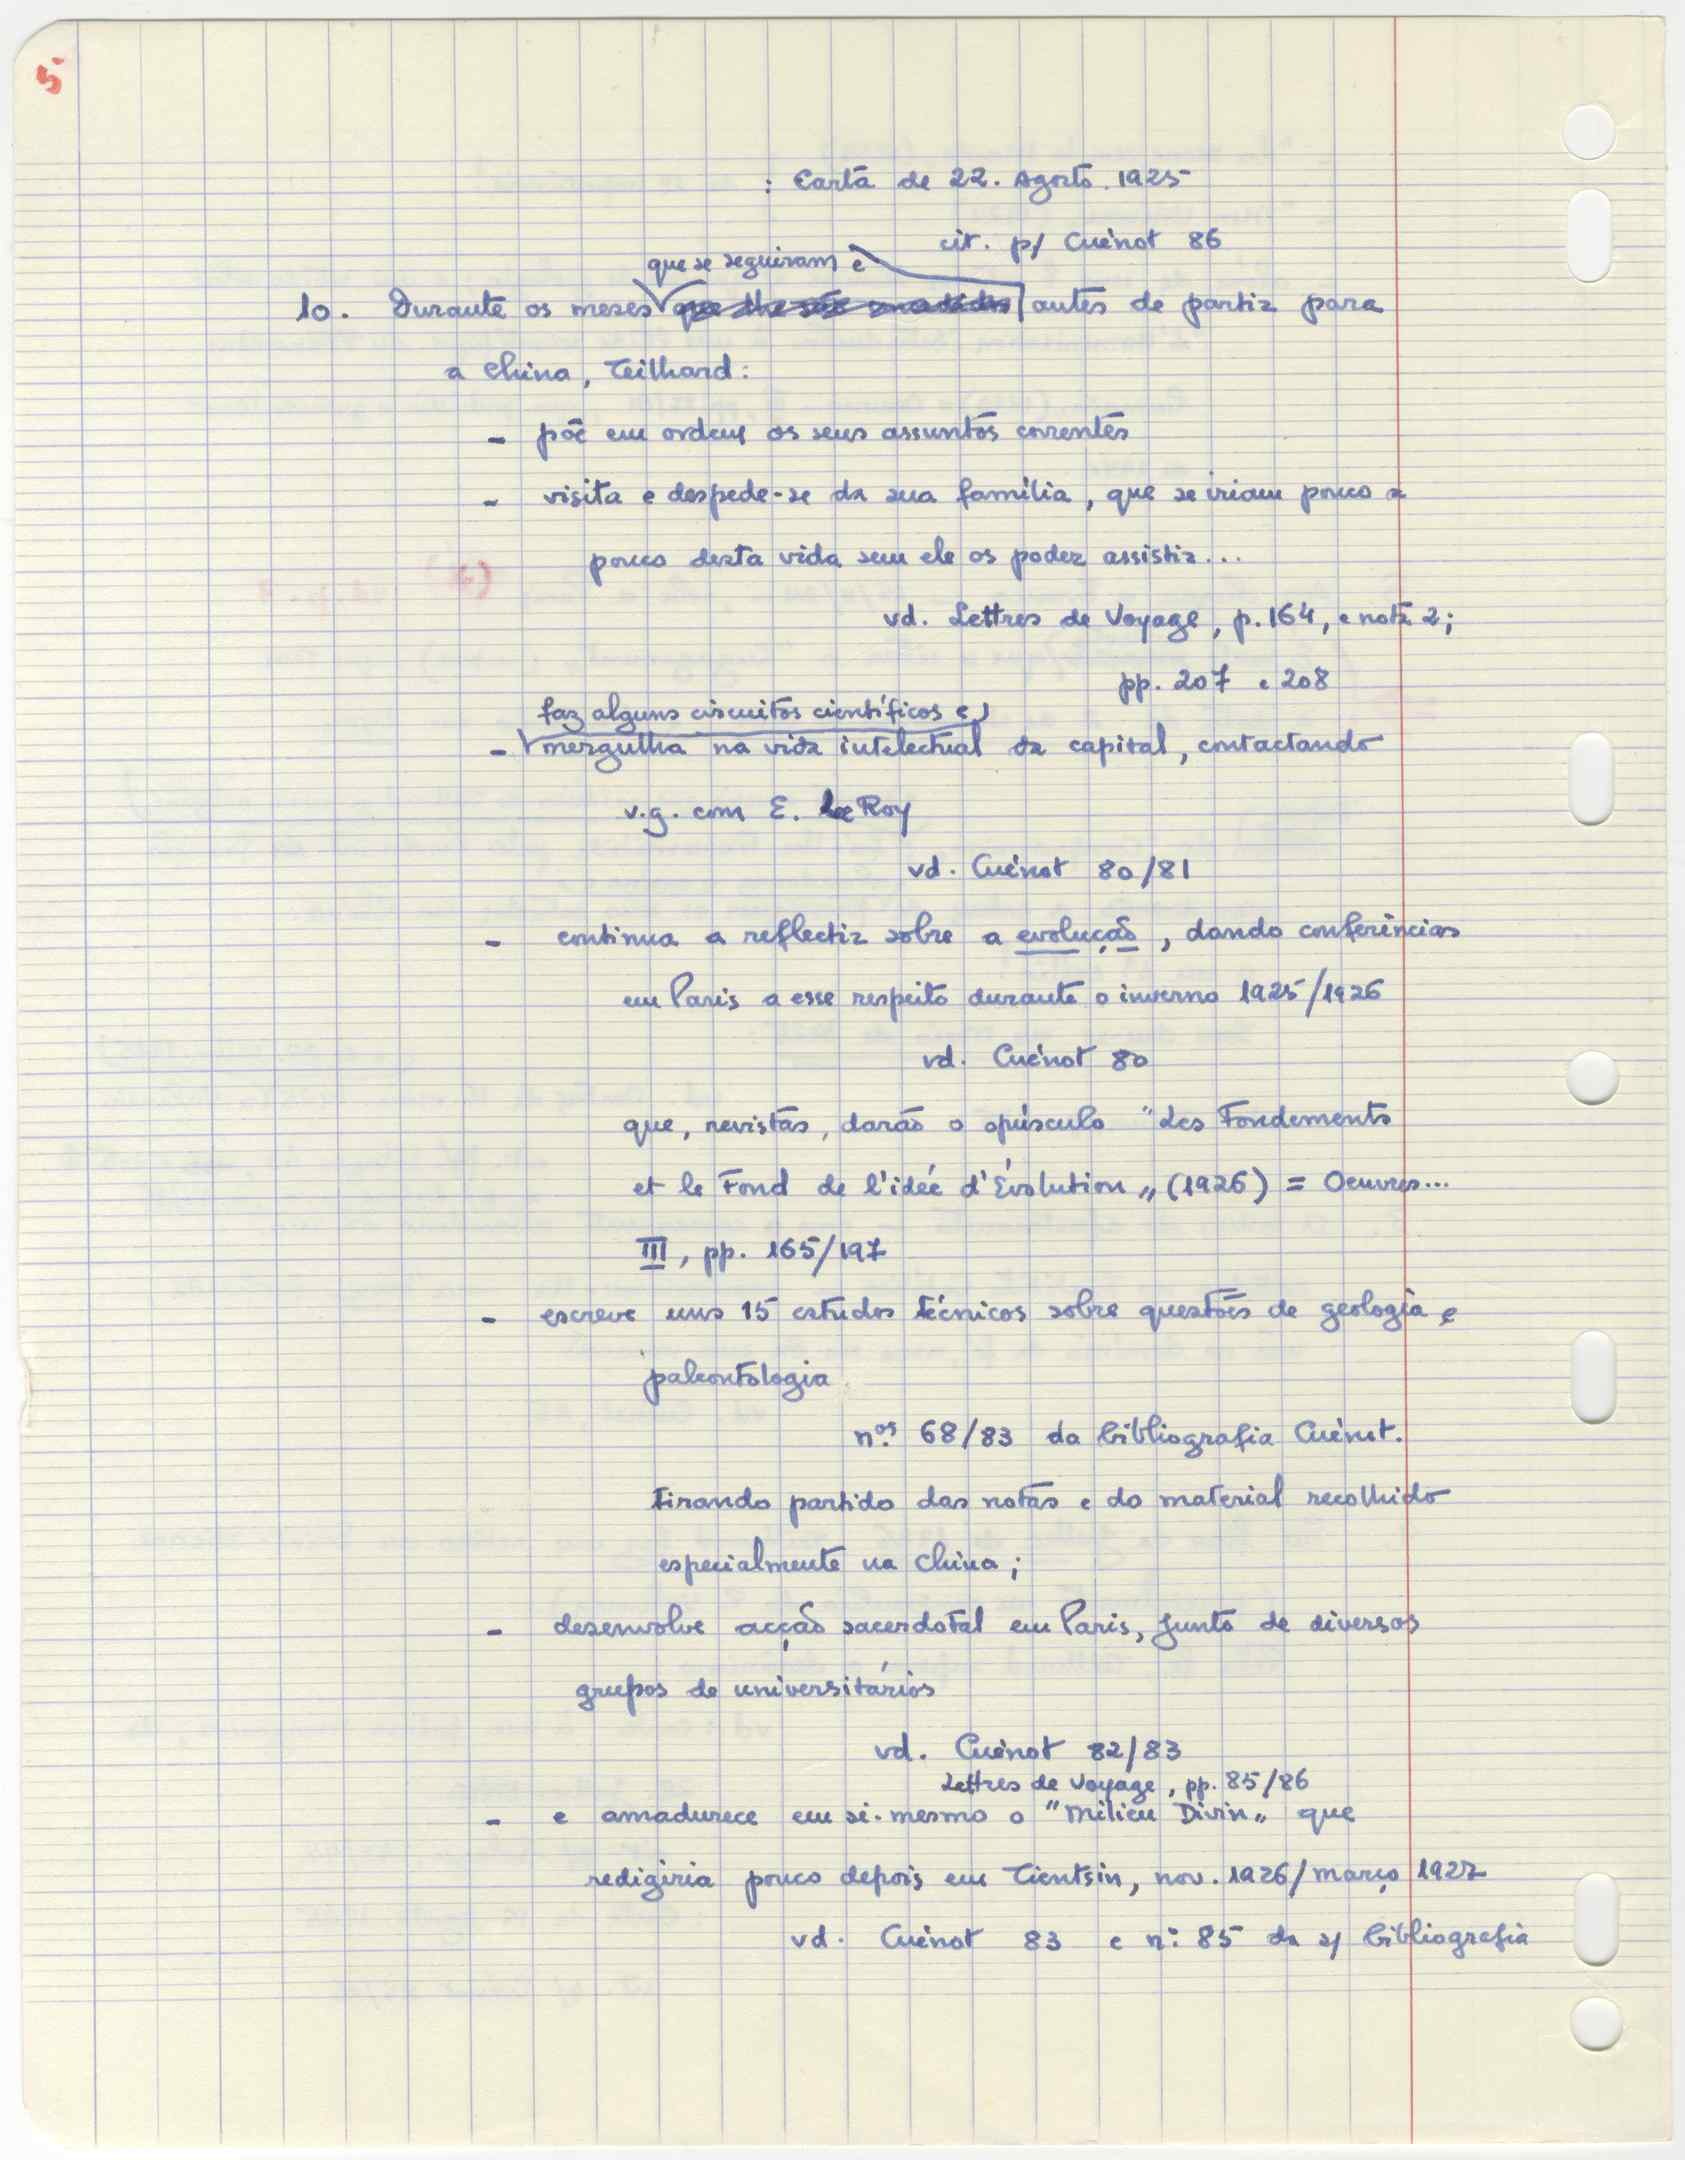 5
: Carta de 22. Agosto. 1925
cit. p/ Cuénot 86
que se seguiram e
10. Durante os meses que lhe são concedidos antes de partir para
a China, Teilhard:
- põe em ordem os seus assuntos correntes
- visita e despede-se da sua família, que se iriam pouco a
pouco desta vida sem ele os poder assistir...
vd. Lettres de Voyage, p. 164, e nota 2;
pp. 207 e 208
faz alguns circuitos científicos e
- mergulha na vida intelectual da capital, contactando
v.g. com E. Le Roy
vd. Cuénot 80/81
- continua a reflectir sobre a evolução, dando conferências
em Paris a esse respeito durante o inverno 1925/1926
vd. Cuénot 80
que, revistas, darão o opúsculo "Les Fondements
et le Fond de l'idée d'Évolution„ (1926) = Oeuvres...
III, pp. 165/197
- escreve uns 15 estudos técnicos sobre questões de geologia e
paleontologia
n.os 68/83 da bibliografia Cuénot.
tirando partido das notas e do material recolhido
especialmente na China;
- desenvolve acção sacerdotal em Paris, junto de diversos
grupos de universitários
vd. Cuénot 82/83
Lettres de Voyage, pp. 85/86
- e amadurece em si-mesmo o "Milieu Divin„ que
redigiria pouco depois em Tientsin, nov. 1926/março 1927
vd. Cuénot 83 e n.º 85 da s/ bibliografia